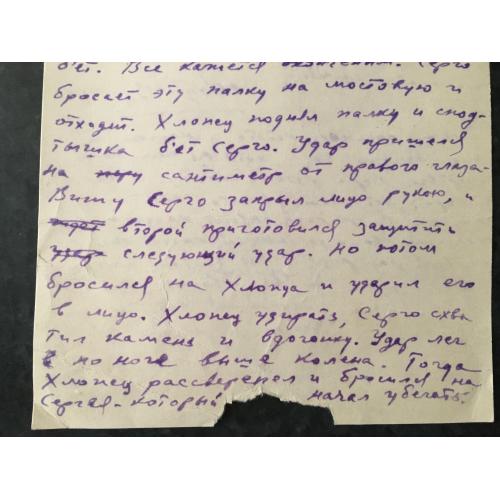 бьет. Все кажется оконченым. Серго
бросает эту палку на мостовую и
отходит. Хлопец поднял палку и спод-
тышка бьет Серго. Удар пришелся
на сантиметр от правого глаза.
Вижу Серго закрыл лицо рукою, и
второй приготовился защитить
удар следующий удар. Но потом
бросился на Хлопца и ударил его
в лицо. Хлопец удирать, Серго схва
тил камень и вдогонку. Удар лег
по ноге выше колена. Тогда
Хлопец рассверепел и бросился на
Сергея - который начал убегать.